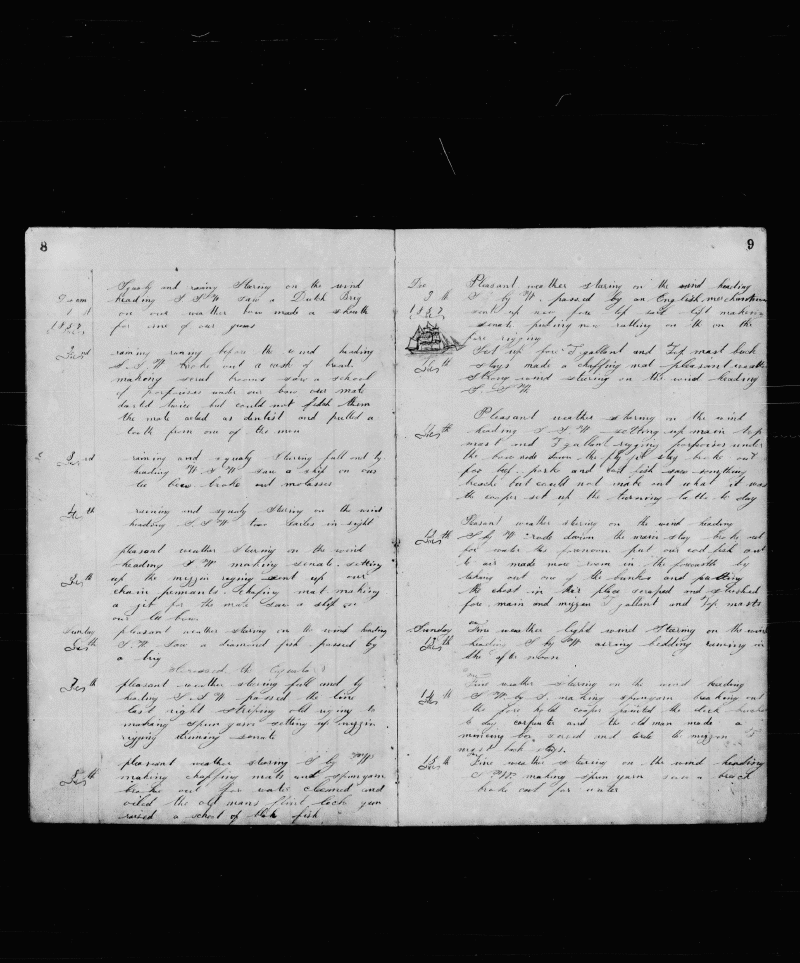 8
Squaly and rainy Staring on the wind
Decem heading S S W saw a Dutch Brig
1 st on our weather bow made a sheath
1858 for one of our guns
2nd raining raining before the wind heading
S. S. W broke out a cask of bread
making senat brooms saw a school
of porpoises under our bow our mate
darted twice but could not fetch them
the mate acted as dentist and pulled a
tooth from one of the men
3rd raining and squaly staring full and by
heading W S W saw a ship on our
lee bow broke out molasses
4th raining and squaly staring on the wind
heading S. S W two sailes in sight
pleasant weather staring on the wind
heading S W making senate setting
5th up the mizzen riging sent up our
chain pennants chafing mat making
a for the mate saw a ship on
our lee bow
sunday pleasant weather staring on the wind heading
6th S. W. saw a diamond fish passed by
a brig
Crossed the Equator
7th pleasant weather staring full and by
heading S. S W passed the line
last night striping old riging to
making spun yarn setting up mizzen
rigging running senate
pleasant weather staring S by W
8th making chaffing mats and spunyarn
broke out for water cleaned and
oiled the old mans flint lock gun
raised a school of black fish
9
Dec Pleasant weather staring on the wind heading
9 th S by W. passed by an English merchantman
1858 sent up new fore top sail lift making
senate puting new ratling on the
fore rigging
10th Set up fore T gallant and Top mast back
stays made a chaffing mat pleasant weather
strong wind staring on the wind heading
S. S. W
Pleasant weather staring on the wind
11th heading S S W setting up main top
mast and T gallant rigging porpoises under
the bow rode down the fly g stay broke out
for beef porke and cod fish saw something
breach but could not make out what it was
the cooper set up the turning lathe to day
Pleasant weather staring on the wind heading
12th S by W rode down the main stay broke out
for water this forenoon put our cod fish out
to air made more room in the forcastle by
taking out one of the bunks and putting
the chest in their place scraped and slushed
fore main and mizzen T gallant and Top masts
Sunday Fine weather light wind Staring on the wind
13th heading S by W airing bedding raining in
the after noon
Fine weather staring on the wind heading
14 th S W by S. making spunyarn breaking out
the fore hold cooper painted the deck buckets
to day carpenter and the old man made a
mincing
mast back stays.
15 th Fine weather staring on the wind heading
making spun yarn saw a breach
broke out for water